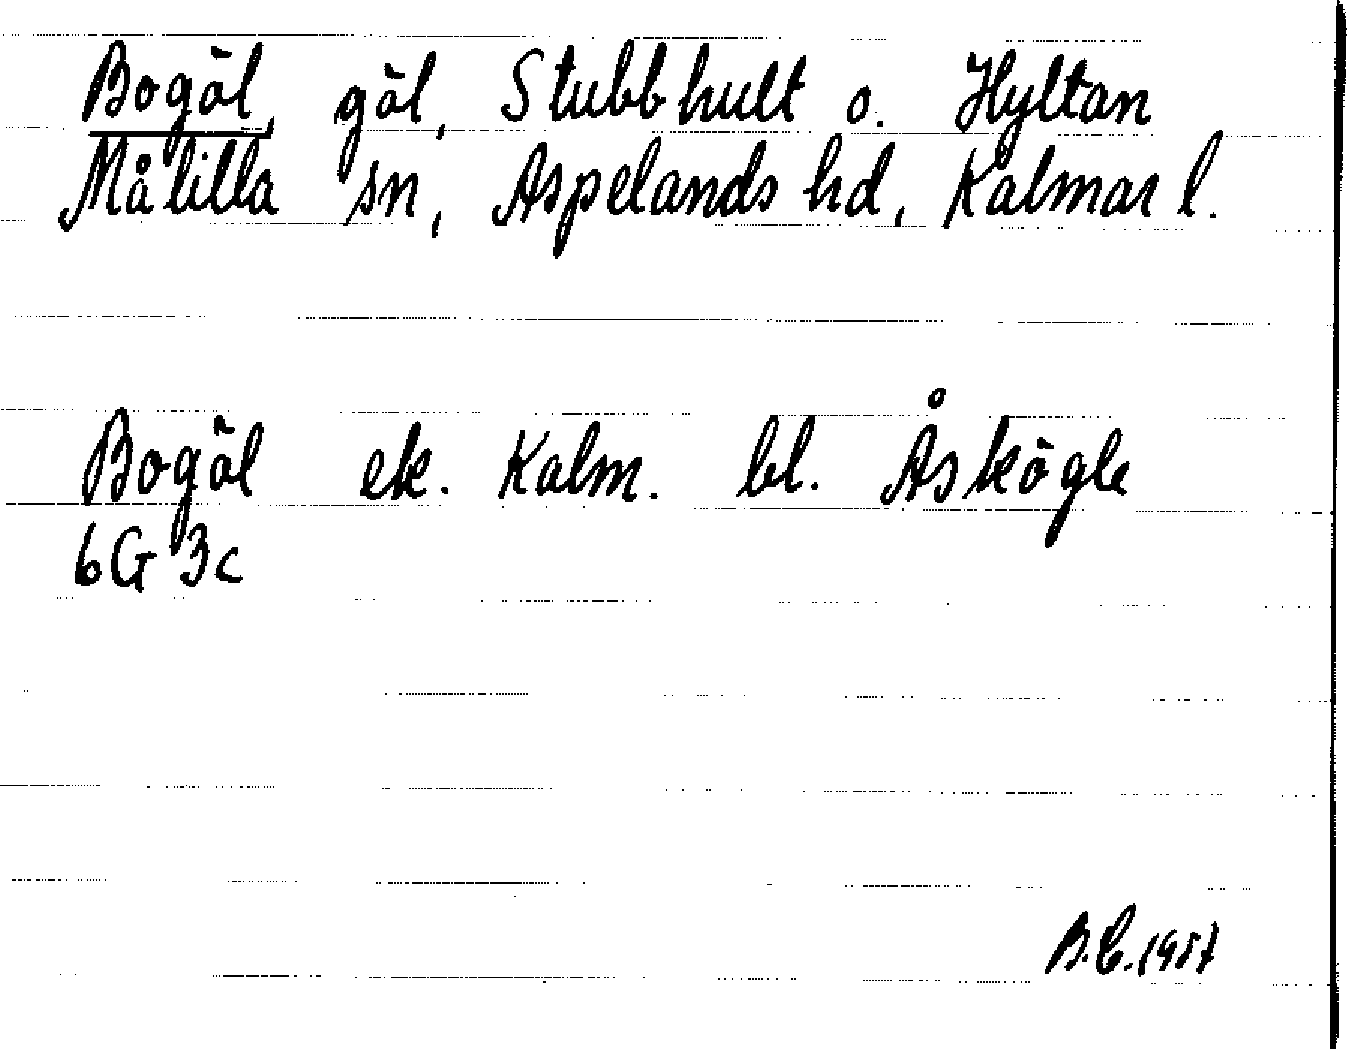 Bogöl, göl, Stubbhult o. Hyltan
Målilla sn, Aspelands hd, Kalmar l.
Bogöl ek. Kalm. bl. Åskögle
6G 3c
B.E. 1957